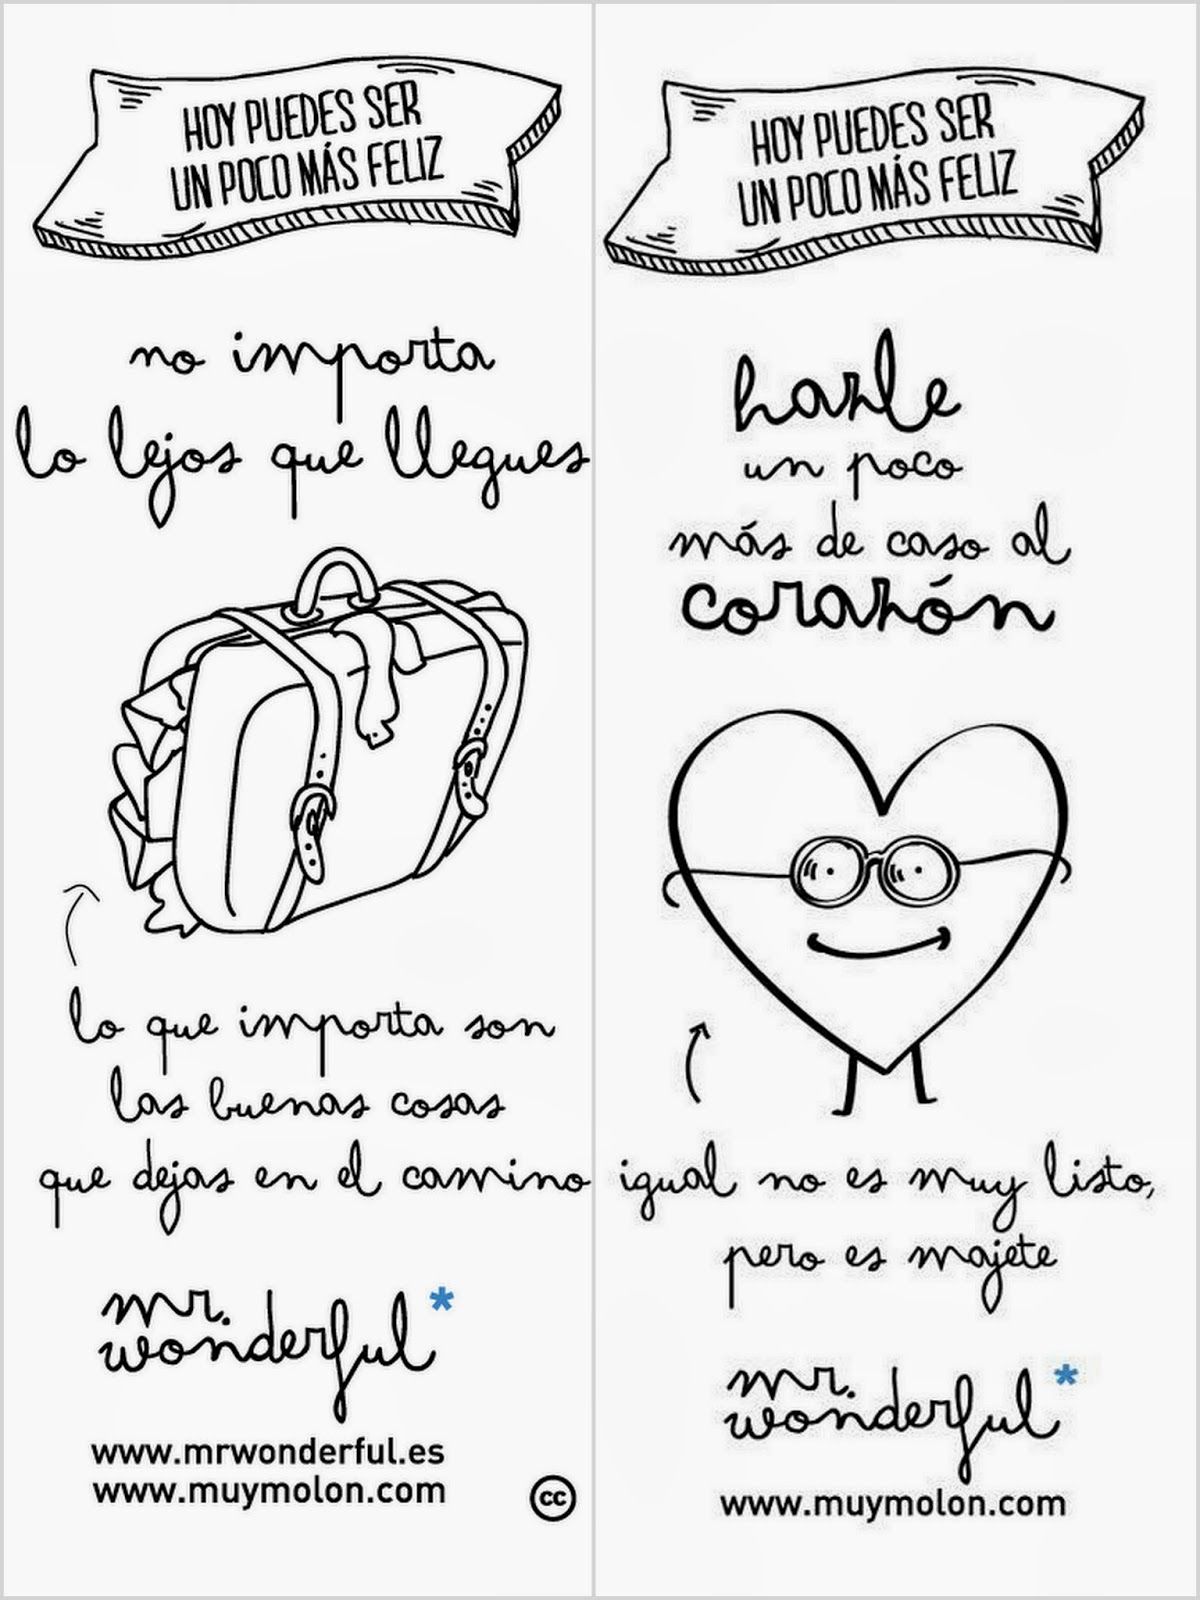 HOY PUEDES SER
UN POCO MÁS FELIZ
no importa
lo lejos que llegues
lo que importa son
las buenas cosas
que dejas en el camino
mr.
wonderful*
www.mrwonderful.es
www.muymolon.com
cc
HOY PUEDES SER
UN POCO MÁS FELIZ
hazle
un poco
más de caso al
corazón
igual no es muy listo,
pero es majete
mr.
wonderful*
www.muymolon.com